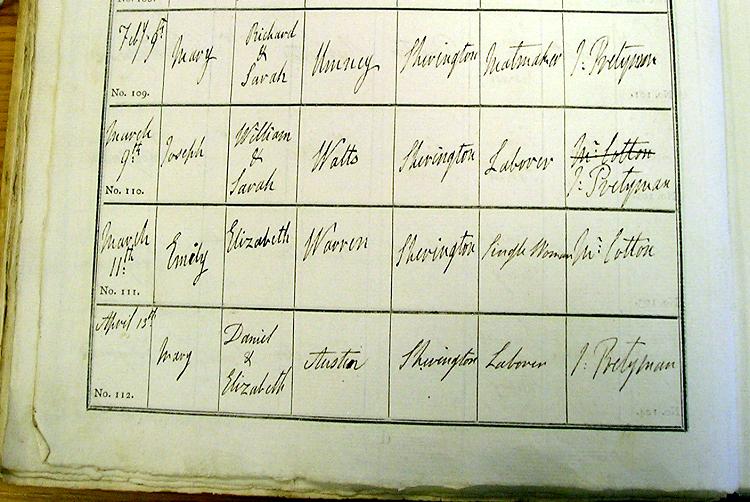 Feby. 9th Mary Richard & Sarah Umney Sherington Matmaker J. Pretyman
No. 109.
March 9th. Joseph William & Sarah Watts Sherington Laborer Mr. Cotton J. Pretyman
No. 110.
March 11th. Emily Elizabeth Warren Sherington Single Woman Mr. Cotton
No. 111.
April 13th Mary Daniel & Elizabeth Austin Sherington Laborer J. Pretyman
No. 112.